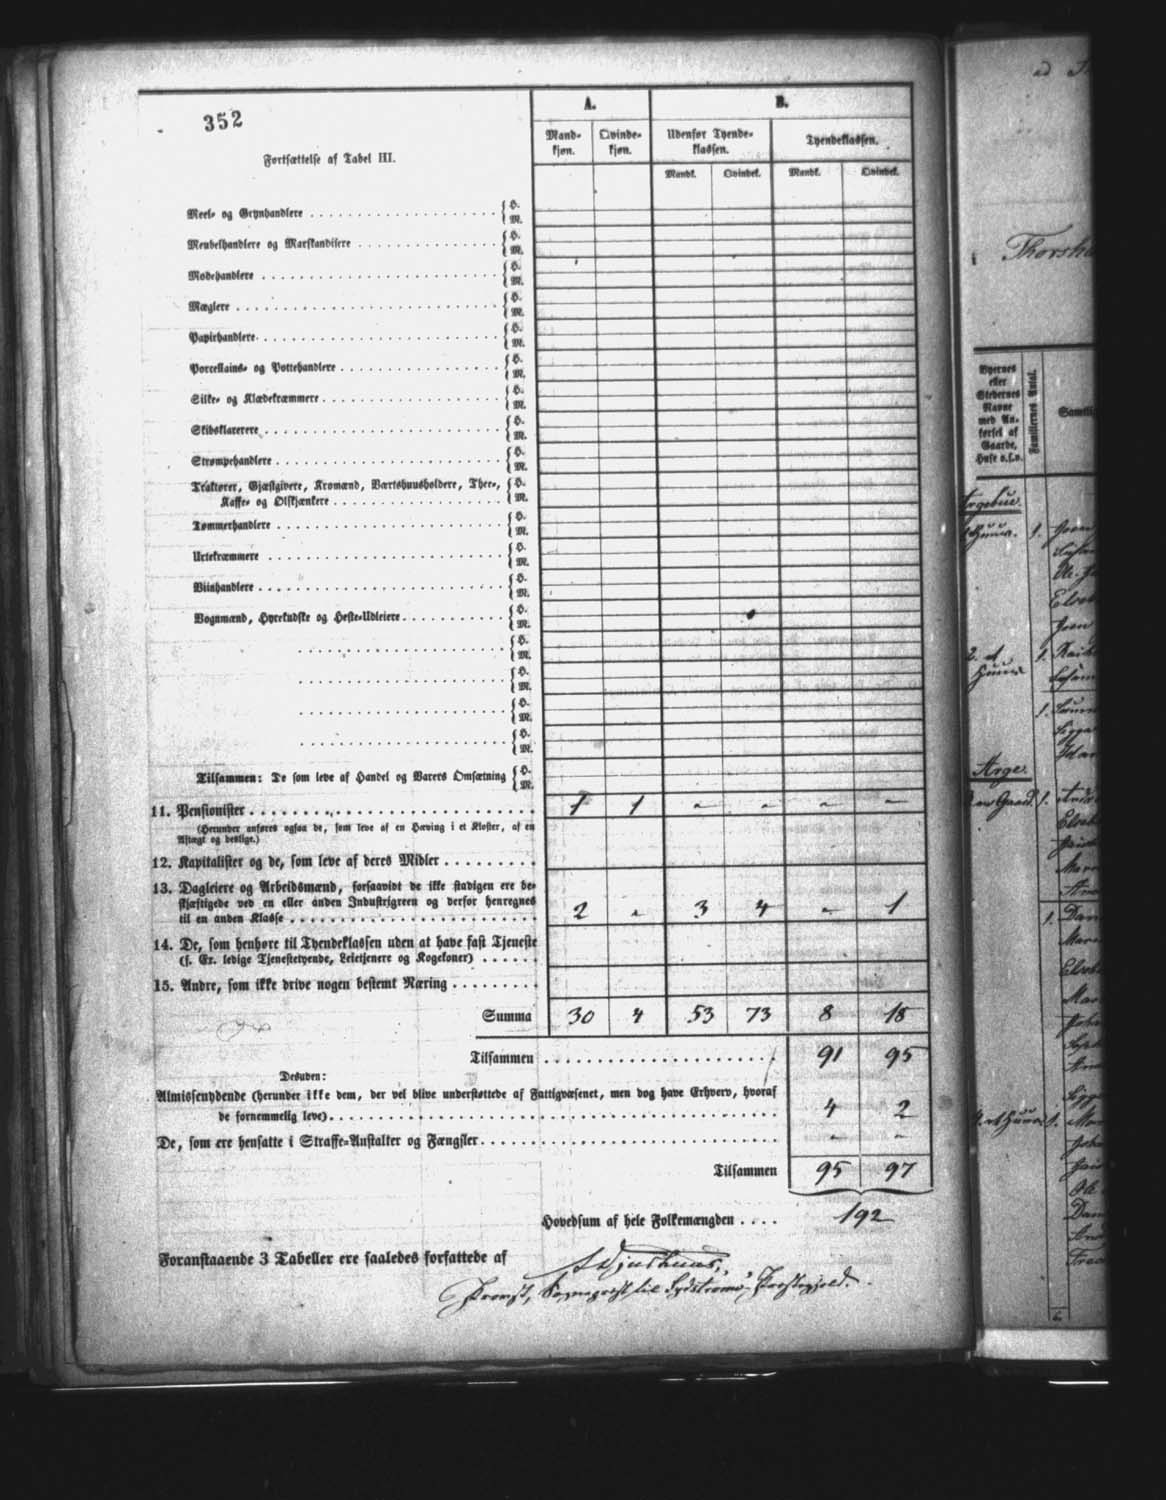 352
Fortsættelse af Tabel III.
A.
B.
Mandkjøn.
Qvindekjøn.
Udenfor Tyendeklassen.
Tyendeklassen.
Mandk.
Qvindek.
Mandk.
Qvindek.
Meel- og Grynhandlere { H. M.
Meubelhandlere og Marskandisere { H. M.
Modehandlere { H. M.
Mæglere { H. M.
Papirhandlere { H. M.
Porcellains- og Pottehandlere { H. M.
Silke- og Klædekræmmere { H. M.
Skibsklarerere { H. M.
Strømpehandlere { H. M.
Traktører, Gjæstgivere, Kromænd, Værtshuusholdere, Thee-,
Kaffe- og Ølskjænkere { H. M.
Tømmerhandlere { H. M.
Urtekræmmere { H. M.
Viinhandlere { H. M.
Vognmænd, Hyrekudske og Heste-Udleiere { H. M.
{ H. M.
{ H. M.
{ H. M.
{ H. M.
Tilsammen: De som leve af Handel og Varers Omsætning { H. M.
11. Pensionister 1 1 - - - -
(Herunder anføres ogsaa de, som leve af en Hæving i et Kloster, af en
Aftægt og deslige.)
12. Kapitalister og de, som leve af deres Midler
13. Dagleiere og Arbeidsmænd, forsaavidt de ikke stadigen ere be-
skjæftigede ved en eller anden Industrigreen og derfor henregnes
til en anden Klasse 2 - 3 4 - 1
14. De, som henhøre til Tyendeklassen uden at have fast Tjeneste
(f. Ex. ledige Tjenestetyende, Leietjenere og Kogekoner)
15. Andre, som ikke drive nogen bestemt Næring
Summa 30 4 53 73 8 18
Tilsammen 91 95
Desuden:
Almissenydende (herunder ikke dem, der vel blive understøttede af Fattigvæsenet, men dog have Erhverv, hvoraf
de fornemmelig leve) 4 2
De, som ere hensatte i Straffe-Anstalter og Fængsler - -
Tilsammen 95 97
Hovedsum af hele Folkemængden 192
Foranstaaende 3 Tabeller ere saaledes forfattede af
Provst, Sognepræst til Sydstrømø Præstegjeld.
Byernes
eller
Stedernes
Navne
med An-
førsel af
Gaarde,
Huse o.s.v.
Familiernes Antal.
Argebue.
Huus. 1.
2. et
Huus 1.
1.
Arge.
en Gaard. 1.
1. Dan
et Huus 1.